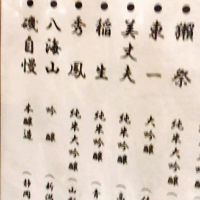 獺祭
純米大吟醸
東一
大吟醸
美丈夫
純米大吟醸
稲生
純米吟醸
秀鳳
純米大吟醸
八海山
吟醸
磯自慢
本醸造